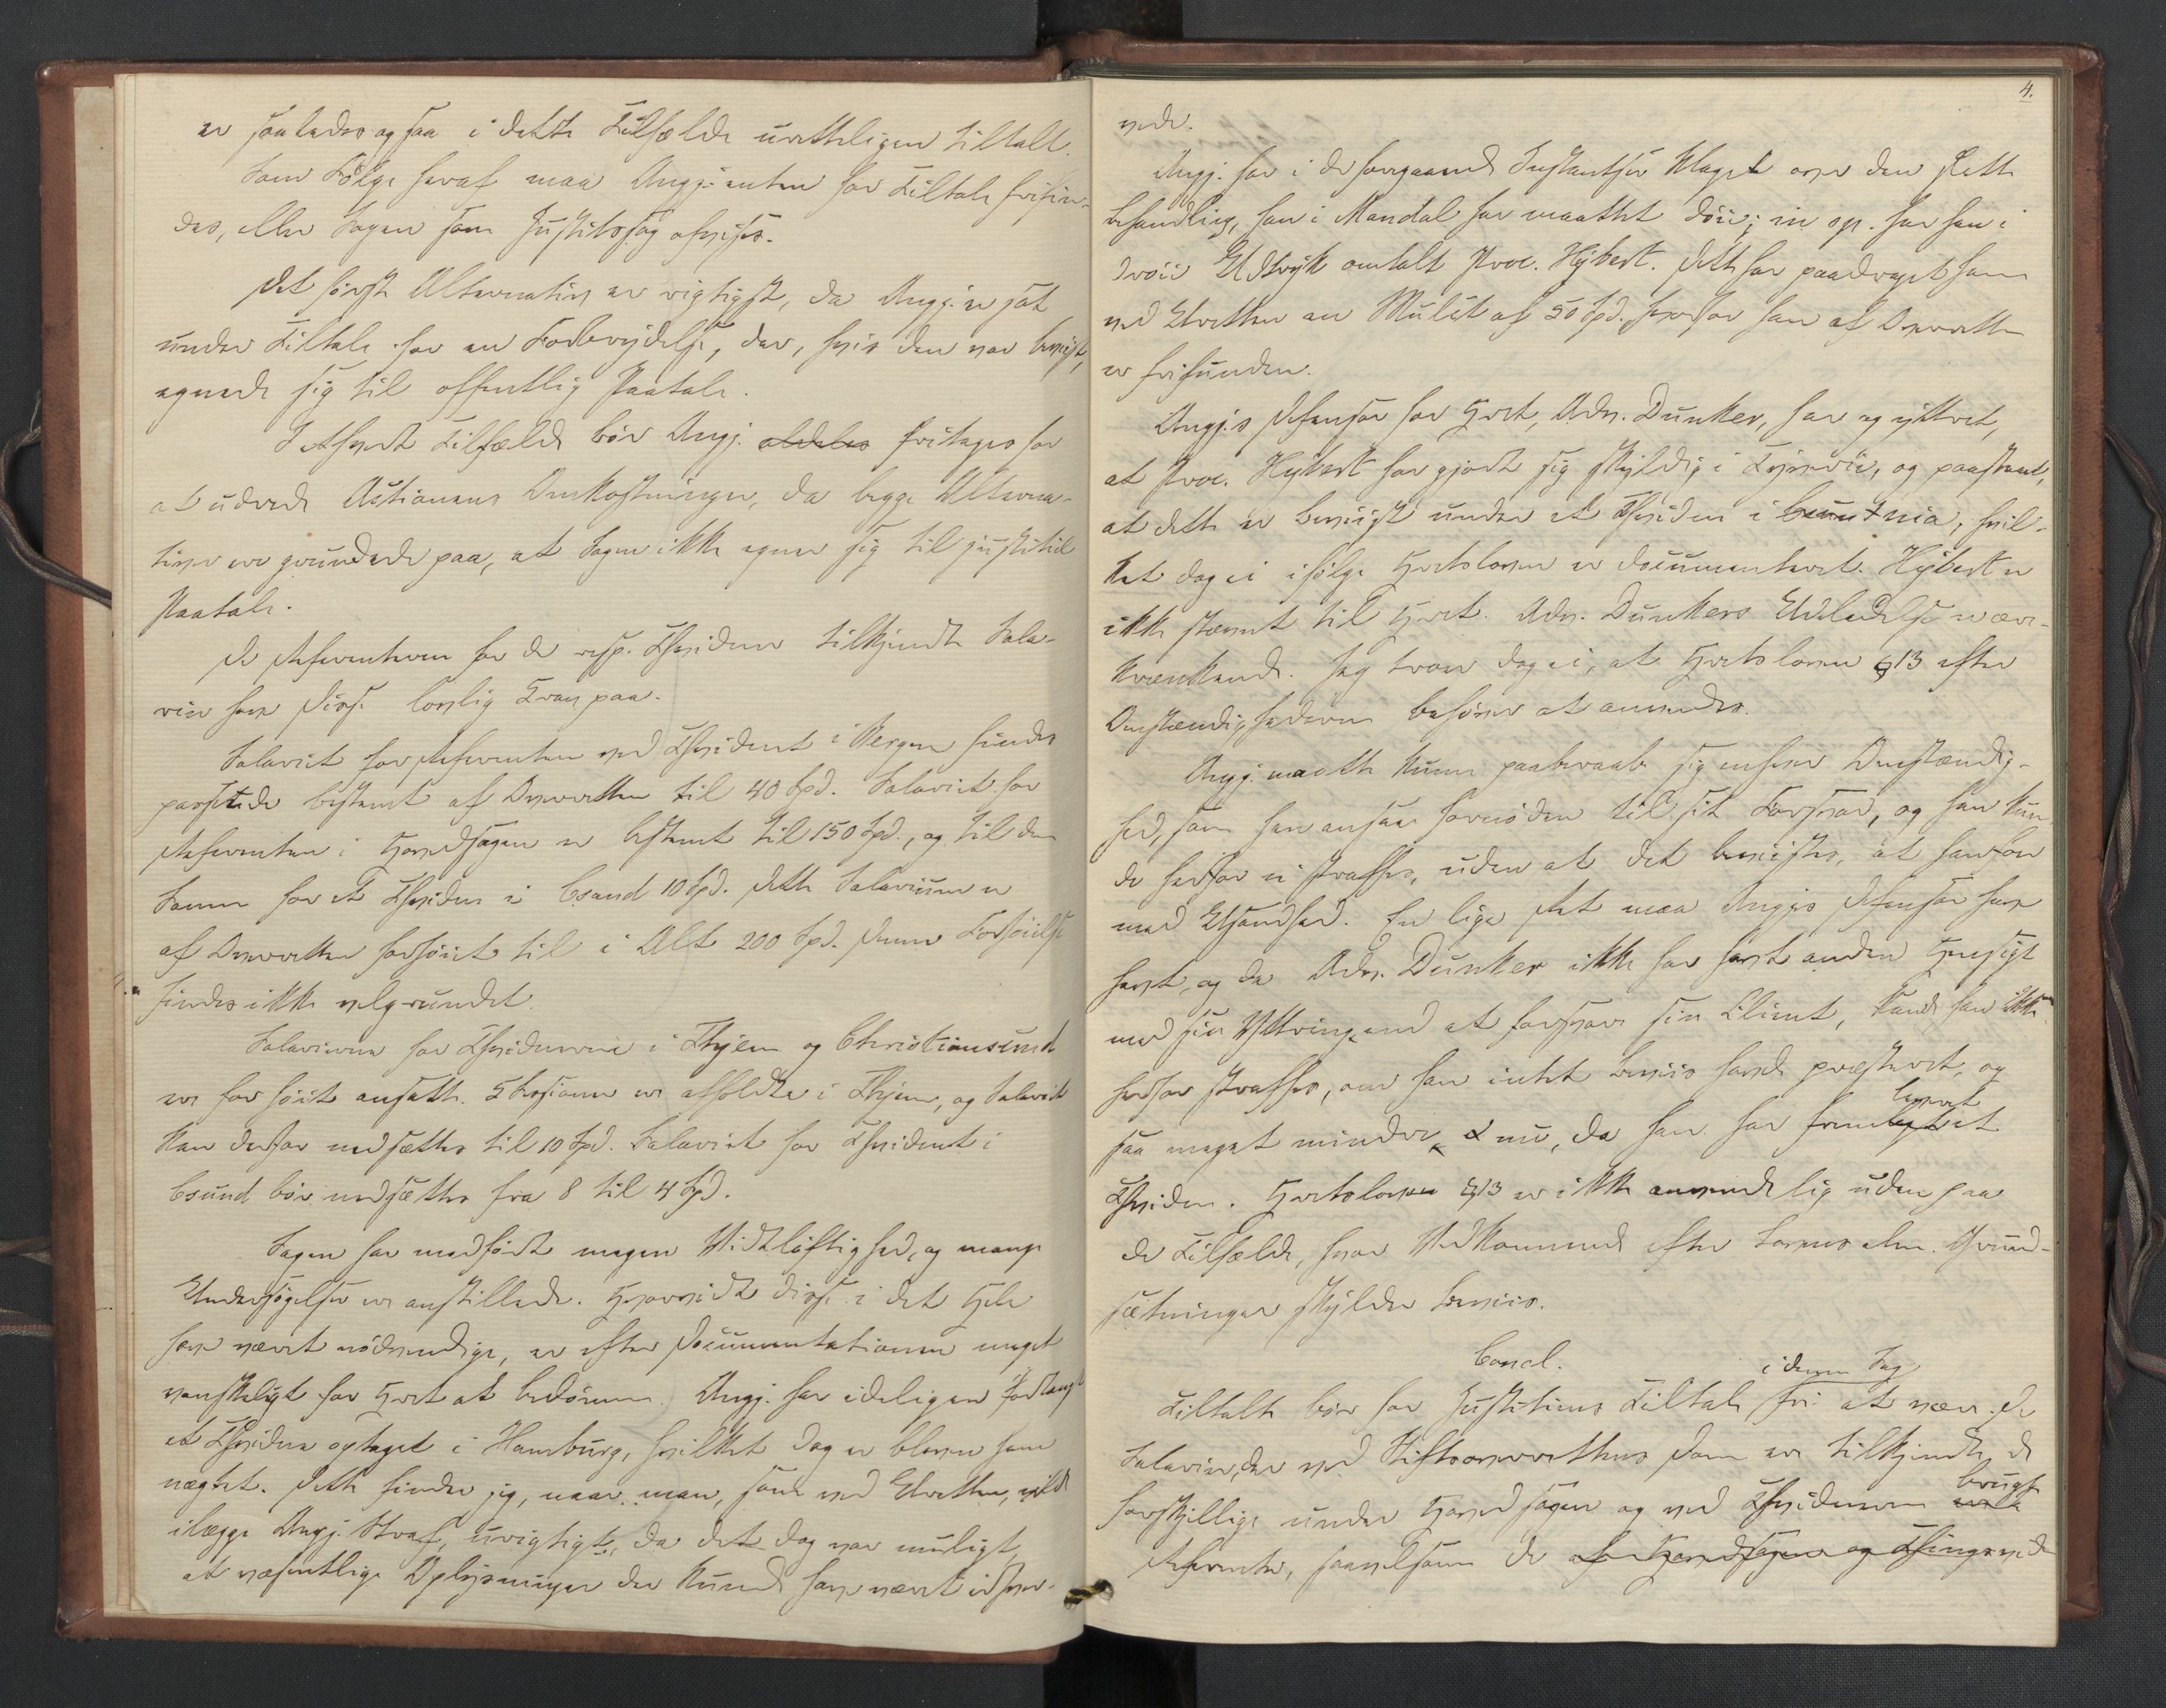 er saaledes ogsaa i dette Tilfælde uretteligen tiltalt.
Som Følge heraf maa Angj.enten for Tiltale frifin-
des, eller Sagen som Justitssag afvises.
Det første Alternativ er rigtigst, da Angj. er sat
under Tiltale for en Forbrydelse, der, hvis den var beviist,
egnede sig til offentlig Paatale.
I ethvert Tilfælde bör Angj. aldeles fritages for
at udrede Actionens Omkostninger, da begge Alterna-
tiver ere grundede paa, at Sagen ikke egner sig til justitiel
Paatale.
De Referenterne for de resp. Thvidner tilkjendte Sala-
rier have disse lovlig Krav paa.
Salariet for Referenten ved Thvidnet i Bergen findes
passende bestemt af Overretten til 40 Spd. Salariet for
Referenten i Hovedsagen er bestemt til 150 Spd., og til den
Samme for et Thvidne i Csand 10 Spd. Dette Salarium er
af Overretten forhöiet til i Alt 200 Spd. Denne Forhöielse
findes ikke velgrundet.
Salarierne for Thvidnerne i Thjem og Christiansund
ere for höit ansatte. 5 Sessioner ere afholdte i Thjem, og Salariet
kan derfor nedsættes til 10 Spd. Salariet for Thvidnet i
Csund bör nedsættes fra 8 til 4 Spd.
Sagen har medfört megen Vidtløftighed, og mange
Undersögelser ere anstillede. Hvorvidt disse i det Hele
have været nödvendige, er efter Documentationen meget
vanskeligt for Hret at bedömme. Angj. har ideligen forlangt
et Thvidne optaget i Hamburg, hvilket dog er bleven ham
nægtet. Dette finder jeg, naar man, som ved Uretten, vilde
ilægge Angj. Straf, urigtigt, da det dog var muligt,
at væsentlige Oplysninger der kunde have været erhver-
4.
vede.
Angj. har i de foregaaende Instantser klaget over den slette
Behandling, han i Mandal har maattet döie; in sp. har han i
drøie Udtryk omtalt Proc. Hybert. Dette har paadraget ham
ved Uretten en Mulct af 50 Spd. hvorfor han af Overretten
er frifunden.
Angj.s Defensor for Hret, Adv. Dunker, har og yttret,
at Proc. Hybert har gjort sig skyldig i Tyverie, og paastaaet,
at dette er beviist under et Thvidne i Christania, hvil-
ket dog ei ifølge Hretsloven er documenteret. Hybert er
ikke stævnt til Hret. Adv. Dunkers Udladelse er ære-
krænkende. Jeg troer dog ei, at Hretsloven § 13 efter
Omstændighederne behöver at anvendes.
Angj. maatte kunne paaberaabe sig enhver Omstændig-
hed, som han ansaae fornöden til sit Forsvar, og han kun-
de herfor ei straffes, uden at det bevistes, at han foer
med Usandhed. En lige Ret maa Angjs Defensor have
havt, og da Adv. Dunker ikke har havt anden Hensigt
med sin Yttring end at forsvare sin Client, kunde han ikke
herfor straffes, om han intet Beviis havde præsteret, og
saa meget mindre nu, da han har fremlagt leveret et
Thvidne. Hretsloven § 13 er ikke anvendelig uden paa
de Tilfælde, hvor Vedkommende efter Lovens alm. Grund-
sætninger skylder Beviis.
Concl.
Tiltalte bör for Justitiens Tiltale i denne Sag fri at være. De
Salarier, der ved Stiftsoverrettens Dom ere tilkjendte de
forskjellige under Hovedsagen og ved Thvidnerne brugte
Referenter, saavelsom de af Hovedsagen og Thingsvidn